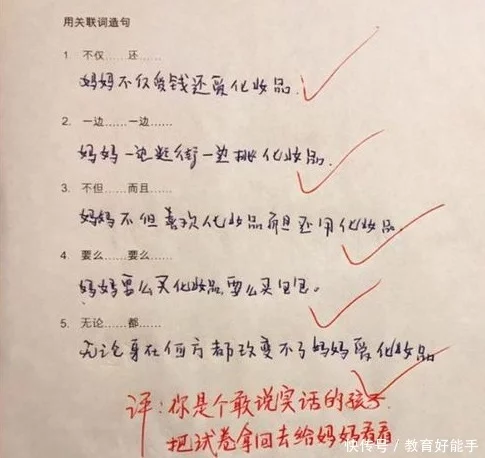 用关联词造句
1. 不仅……还……
妈妈不仅爱钱还爱化妆品.
2. 一边……一边……
妈妈一边逛街一边挑化妆品.
3. 不但……而且……
妈妈不但喜欢化妆品而且还用化妆品
4. 要么……要么……
妈妈要么买化妆品,要么买包包。
5. 无论……都……
无论身在何方都改变不了妈妈爱化妆品
评:你是个敢说实话的孩子.
把试卷拿回去给妈妈看看
快传号/教育好能手